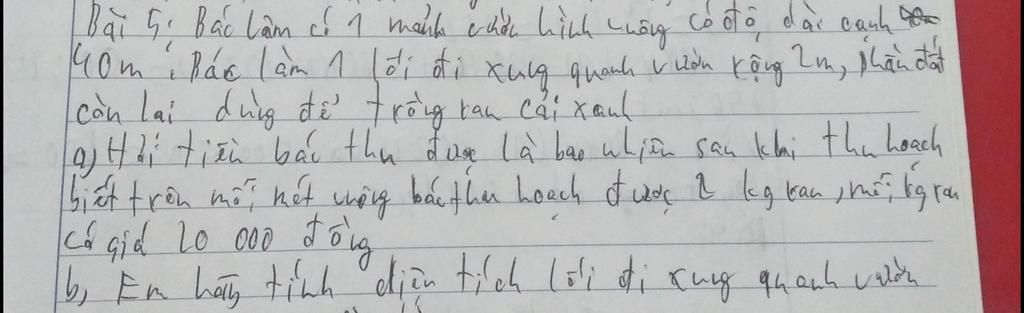 Bài 5: Bác Lâm có 1 mảnh vườn hình vuông có độ dài cạnh
40m. Bác làm 1 lối đi xung quanh vườn rộng 2m, phần đất
còn lại dùng để trồng rau cải xanh
a) Hỏi tiền bác thu được là bao nhiêu sau khi thu hoạch
biết trên mỗi mét vuông bác thu hoạch được 2 kg rau, mỗi kg rau
có giá 20 000 đồng
b, Em hãy tính diện tích lối đi xung quanh vườn